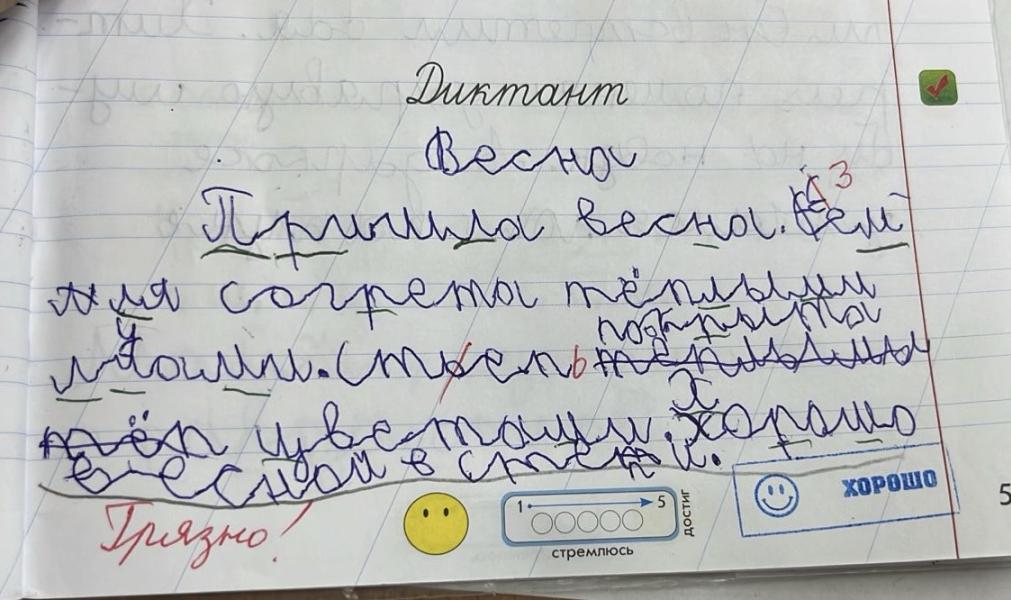 Диктант
Весна
Пришла весна. Зем
3
ля согрета тёплыми
покрыта
лучами. Степь
х
цветами. хорошо
весной в степи.
Грязно!
1 5
достиг
стремлюсь
ХОРОШО
5